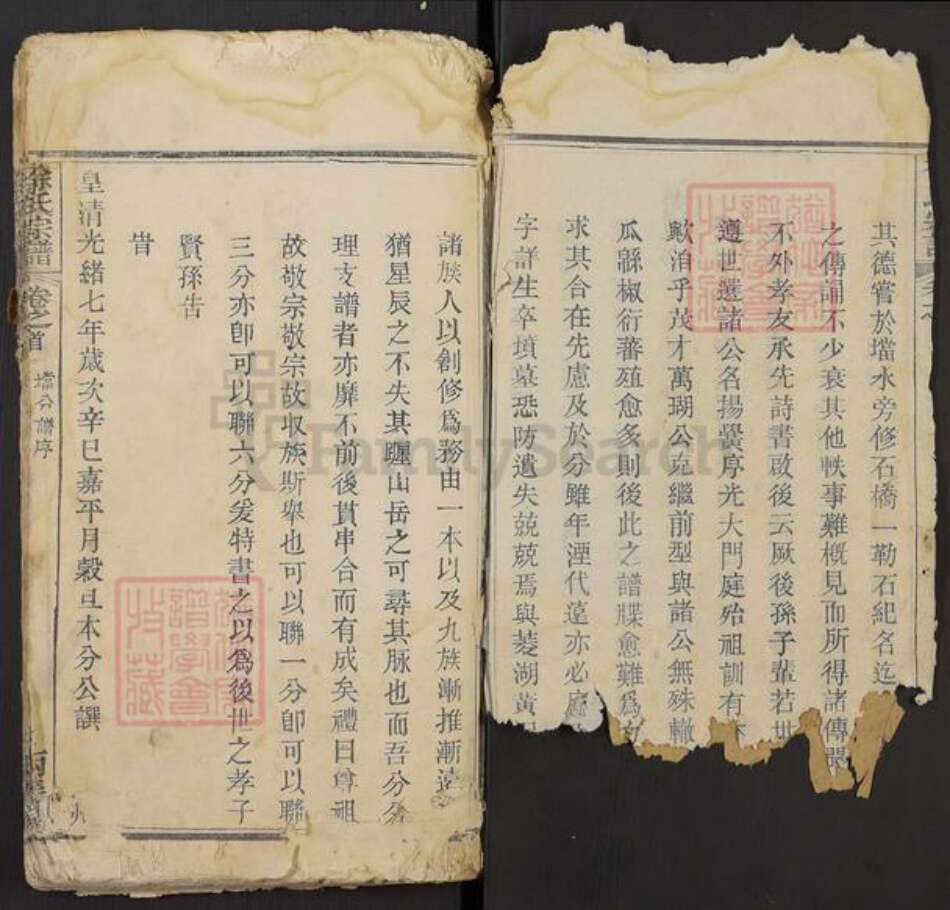 其德嘗於壋水旁修石橋一勒石紀名迄
之傳謂不少衰其他軼事難概見而所得諸傳聞
不外孝友承先詩書啟後云厥後孫子輩若世
遵世選諸公名揚黌序光大門庭殆祖訓有
歟洎乎茂才萬瑚公克繼前型與諸公無殊轍
瓜緜椒衍蕃殖愈多則後此之譜牒愈難爲
求其合在先慮及於分雖年湮代遠亦必
字詳生卒墳墓恐防遺失兢兢焉與菱湖黃
諸族人以創修爲務由一本以及九族漸推漸遠
猶星辰之不失其躔山岳之可尋其脉也而吾分
理支譜者亦靡不前後貫串合而有成矣禮曰尊祖
故敬宗敬宗故收族斯舉也可以聯一分卽可以聯
三分亦卽可以聯六分爰特書之以爲後世之孝子
賢孫告
旹
皇清光緒七年歲次辛巳嘉平月穀旦本分公譔
徐氏宗譜
卷之首
壋分譜序
FamilySearch